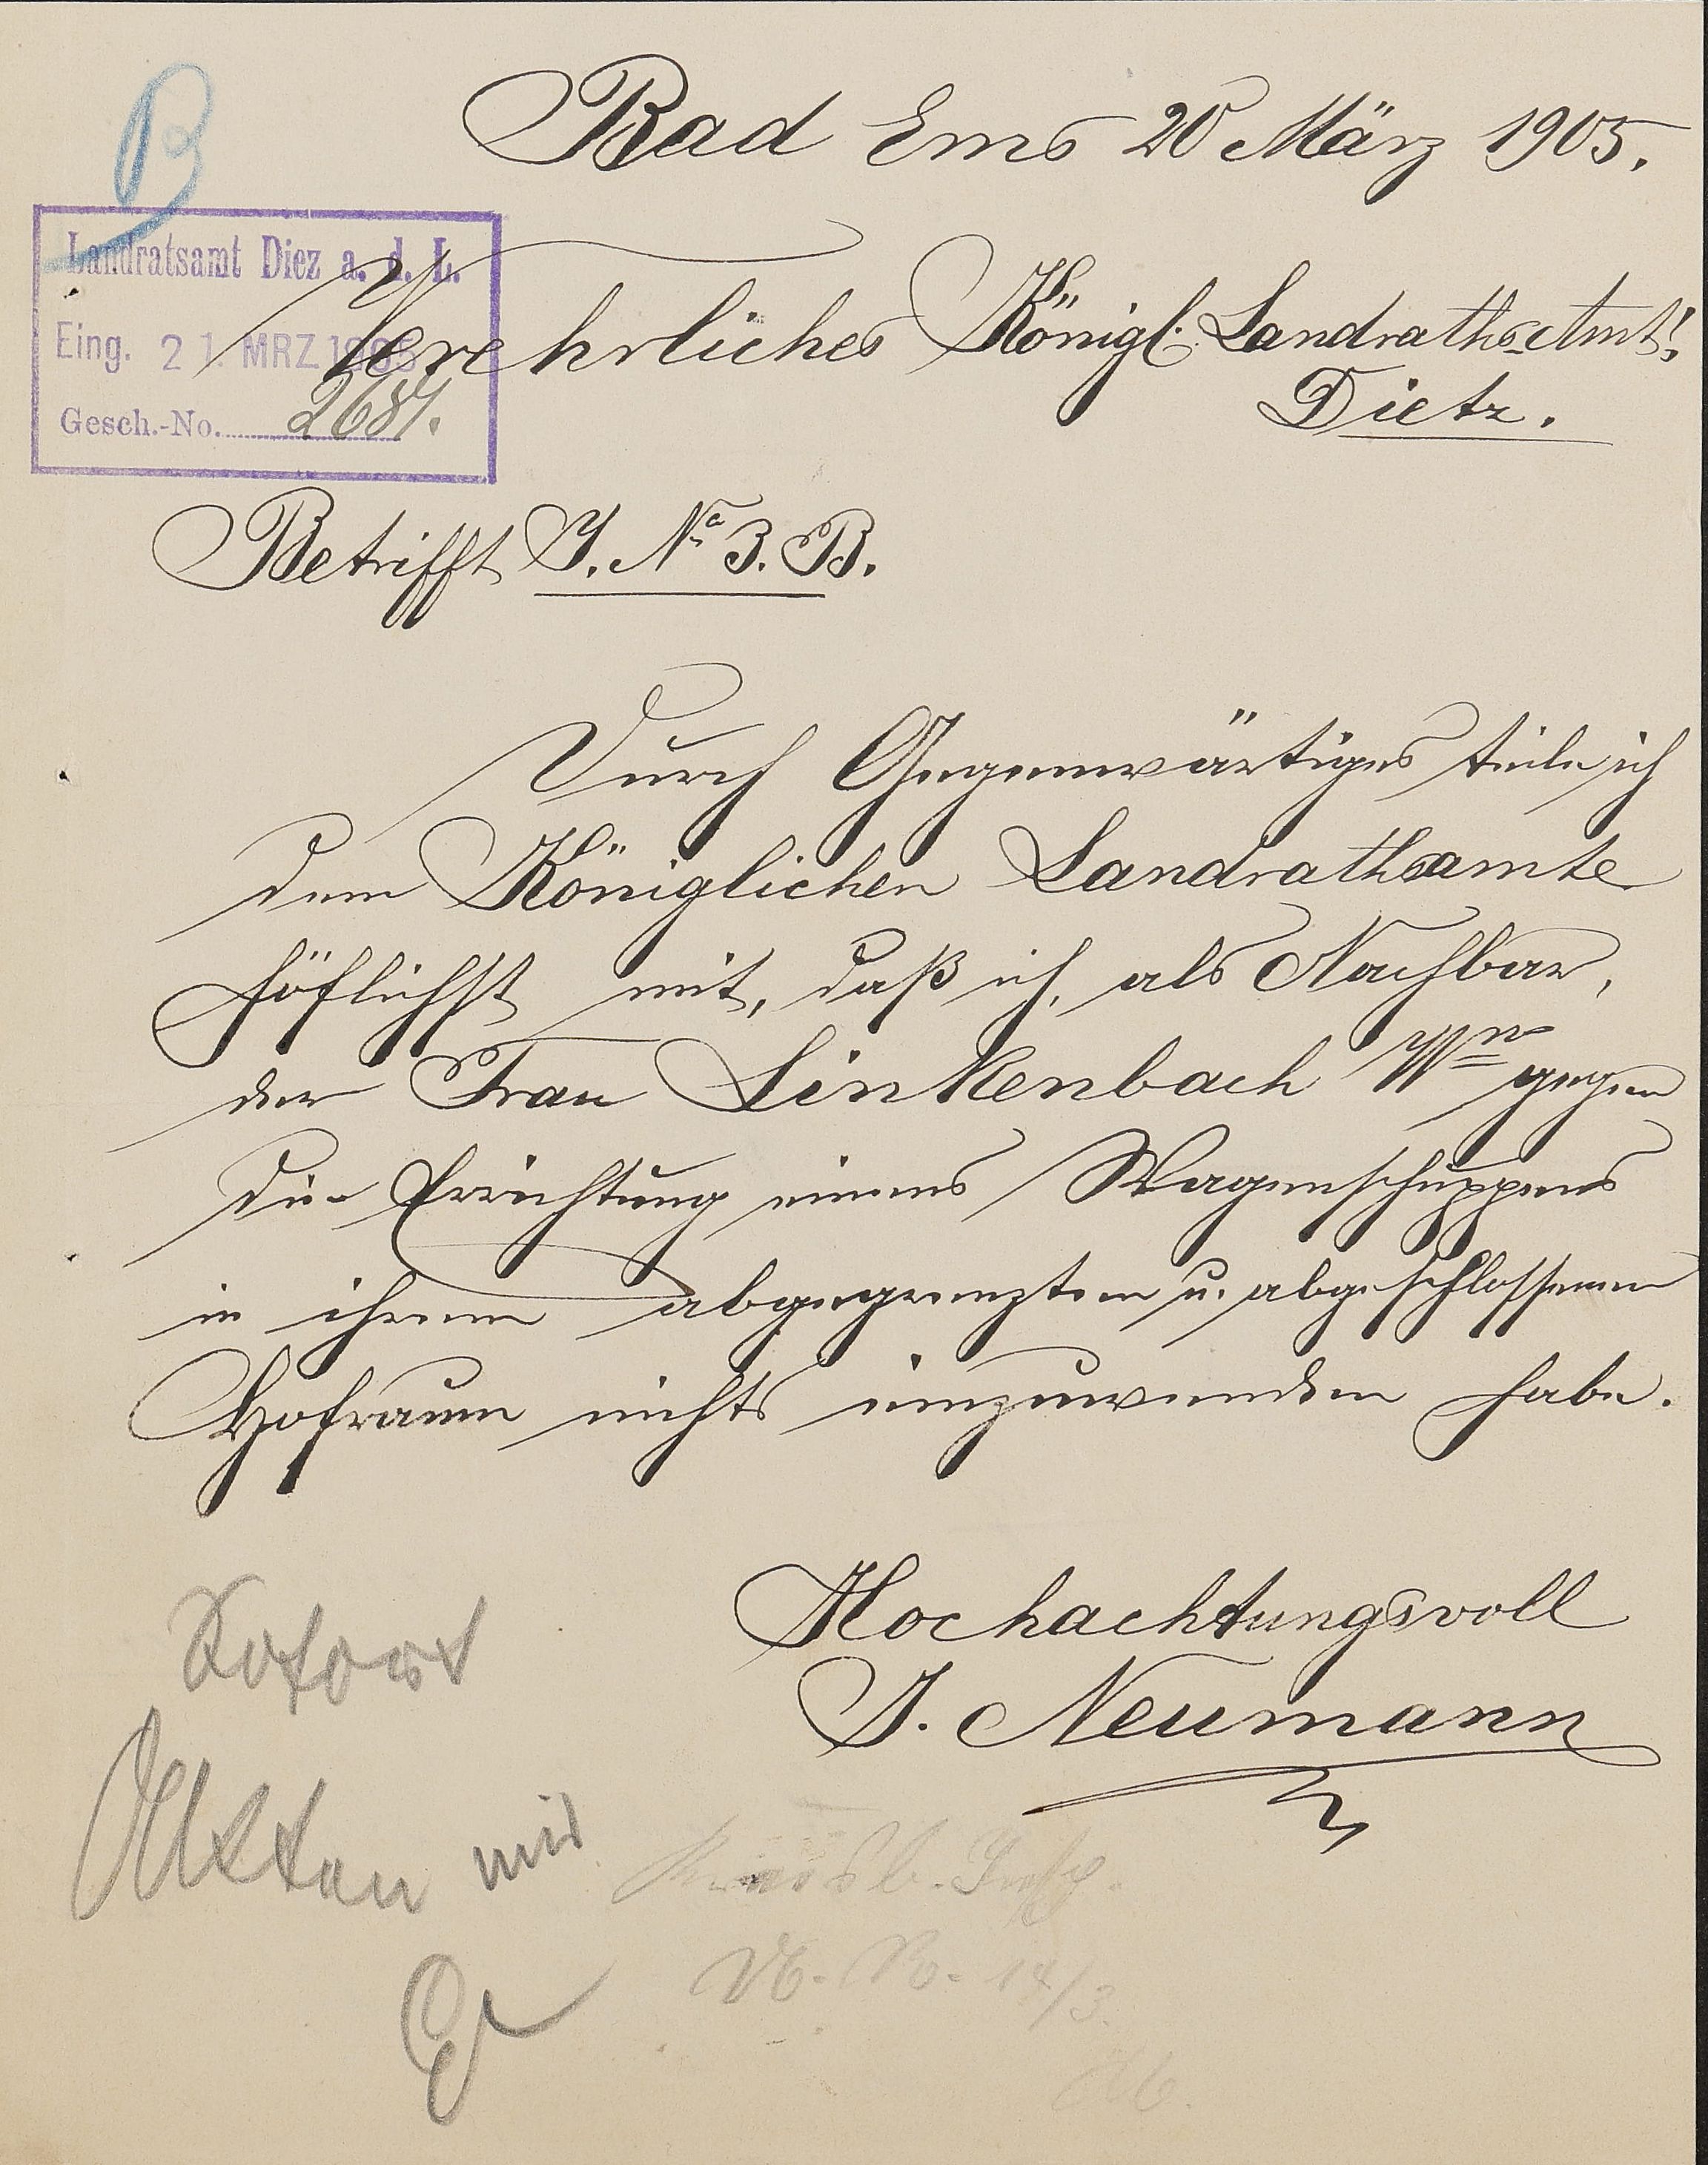 B
Bad Ems 20 März 1905.
Landratsamt Diez a. d. L.
Eing. 21. MRZ. 1905
Gesch.-No. 2687.
Verehrliches Königl. Landraths-Amt!
Dietz.
Betrifft J. No 3. B.
Durch Gegenwärtiges teile ich
dem Königlichen Landrathsamte
höflichst mit, daß ich, als Nachbar,
der Frau Linkenbach Wwe gegen
die Errichtung eines Wagenschuppens
in ihrem abgegrenzten u. abgeschlossenen
Hofraum nichts einzuwenden habe.
Hochachtungsvoll
J. Neumann
Sofort
Akten mir
14/3.